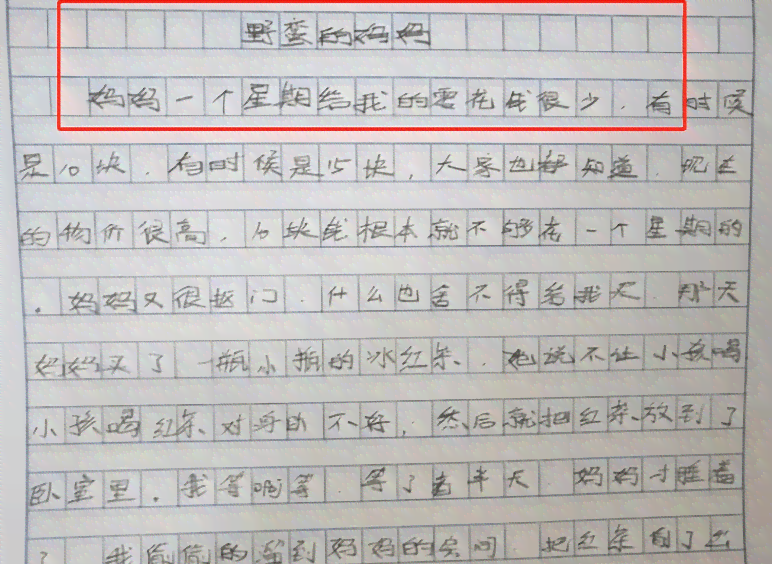 野蛮的妈妈
妈妈一个星期给我的零花钱很少，有时候
是10块，有时候是15块，大家也都知道，现在
的物价很高，10块钱根本就不够花一个星期的
。妈妈又很抠门，什么也舍不得给我买，那天
妈妈买了一瓶小瓶的冰红茶，她说不让小孩喝
小孩喝红茶对身体不好，然后就把红茶放到了
卧室里。我等呐等，等了老半天，妈妈才睡着
了，我偷偷的溜到妈妈的房间，把红茶偷了出